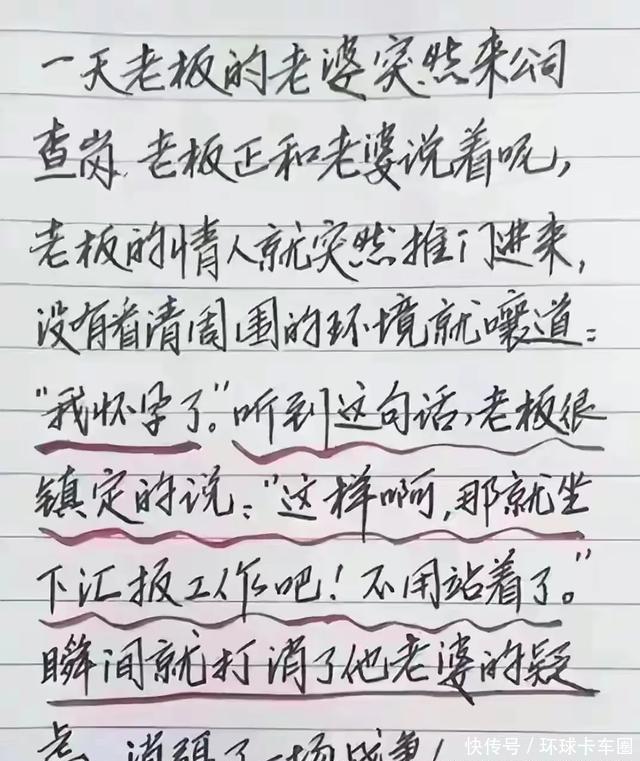 一天老板的老婆突然来公司
查岗,老板正和老婆说着呢,
老板的情人就突然推门进来,
没有看清周围的环境就嚷道:
"我怀孕了。"听到这句话,老板很
镇定的说:"这样啊,那就坐
下汇报工作吧!不用站着了。"
瞬间就打消了他老婆的疑
虑,消弭了一场战争!
快传号/环球卡车圈